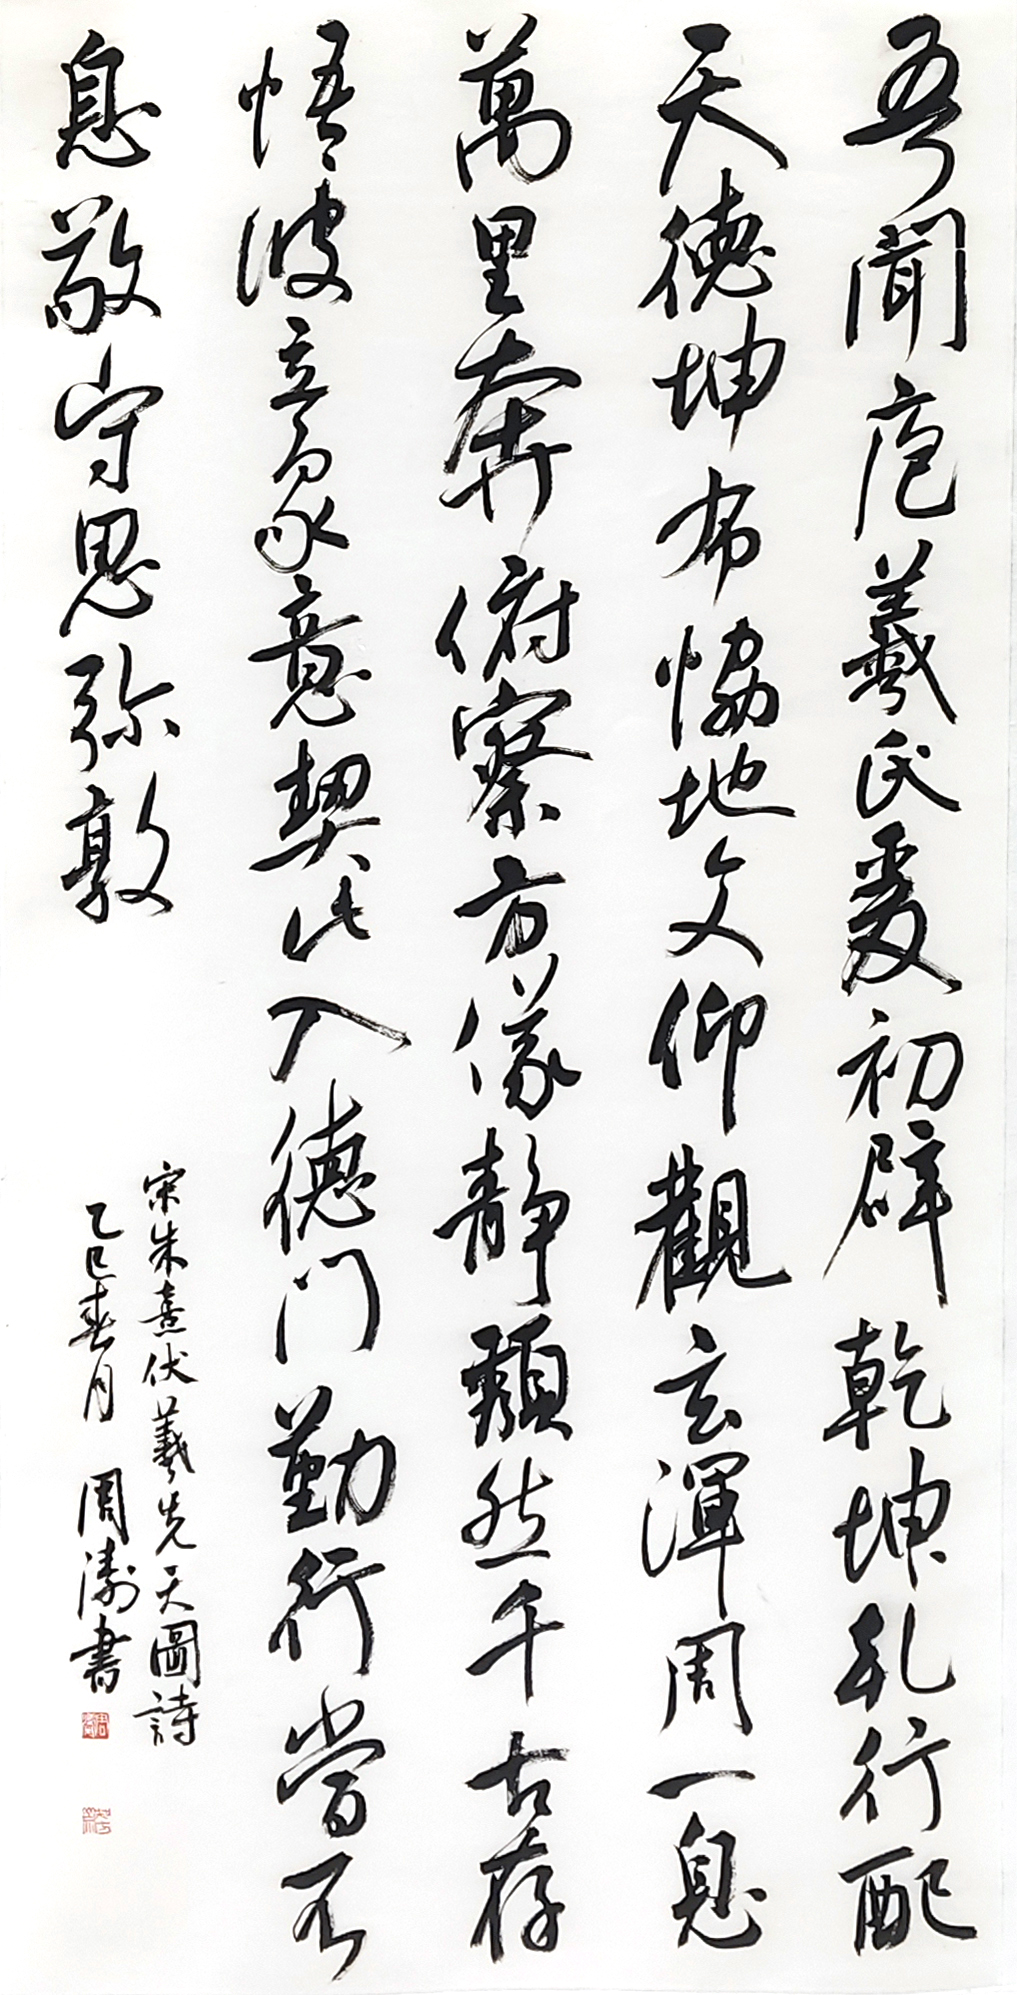 吾聞庖羲氏爰初辟乾坤乹行配
天德坤布恊地文仰觀玄渾周一息
萬里奔俯察方儀靜頹然千古存
悟彼立象意契此入德門勤行當不
息敬守思弥敦
宋朱熹伏羲先天圖詩
乙巳春月 周濤書